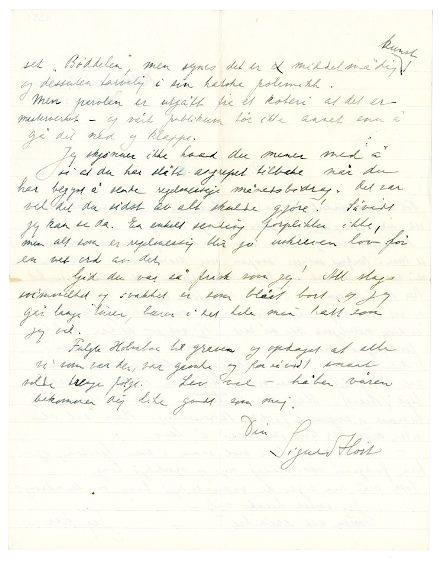 kunst
set "Bøddelen", men synes det er et middelmådig
og dessuten tarvelig i sin hatske polemikk.
Men parolen er utgått fra et koteri at det er
mesterverket - og vårt publikum tør ikke annet enn å
gå dit ned og klappe.
Jeg skjønner ikke hvad du mener med å
si at du har slått angrepet tilbake når du
har begynt å sende regelmessige månedsbidrag. Det var
vel det du sidst av alt skulde gjøre! Såvidt
jeg kan se da. En enkelt sending forplikter ikke,
men alt som er regelmessig blir jo uskreven lov før
en vet ord av det.
Gid du var så frisk som jeg! All slags
svimmelhet og svakhet er som blåst bort og jeg
går lange turer, bærer i det hele mig i lett som
jeg vil.
Fulgte til graven og opdaget at alle
vi som var der, var gamle og forsåvidt snart
vilde følge. Lev vel - håber våren
bekommer dig like godt som mig.
Din
Sigurd Høst